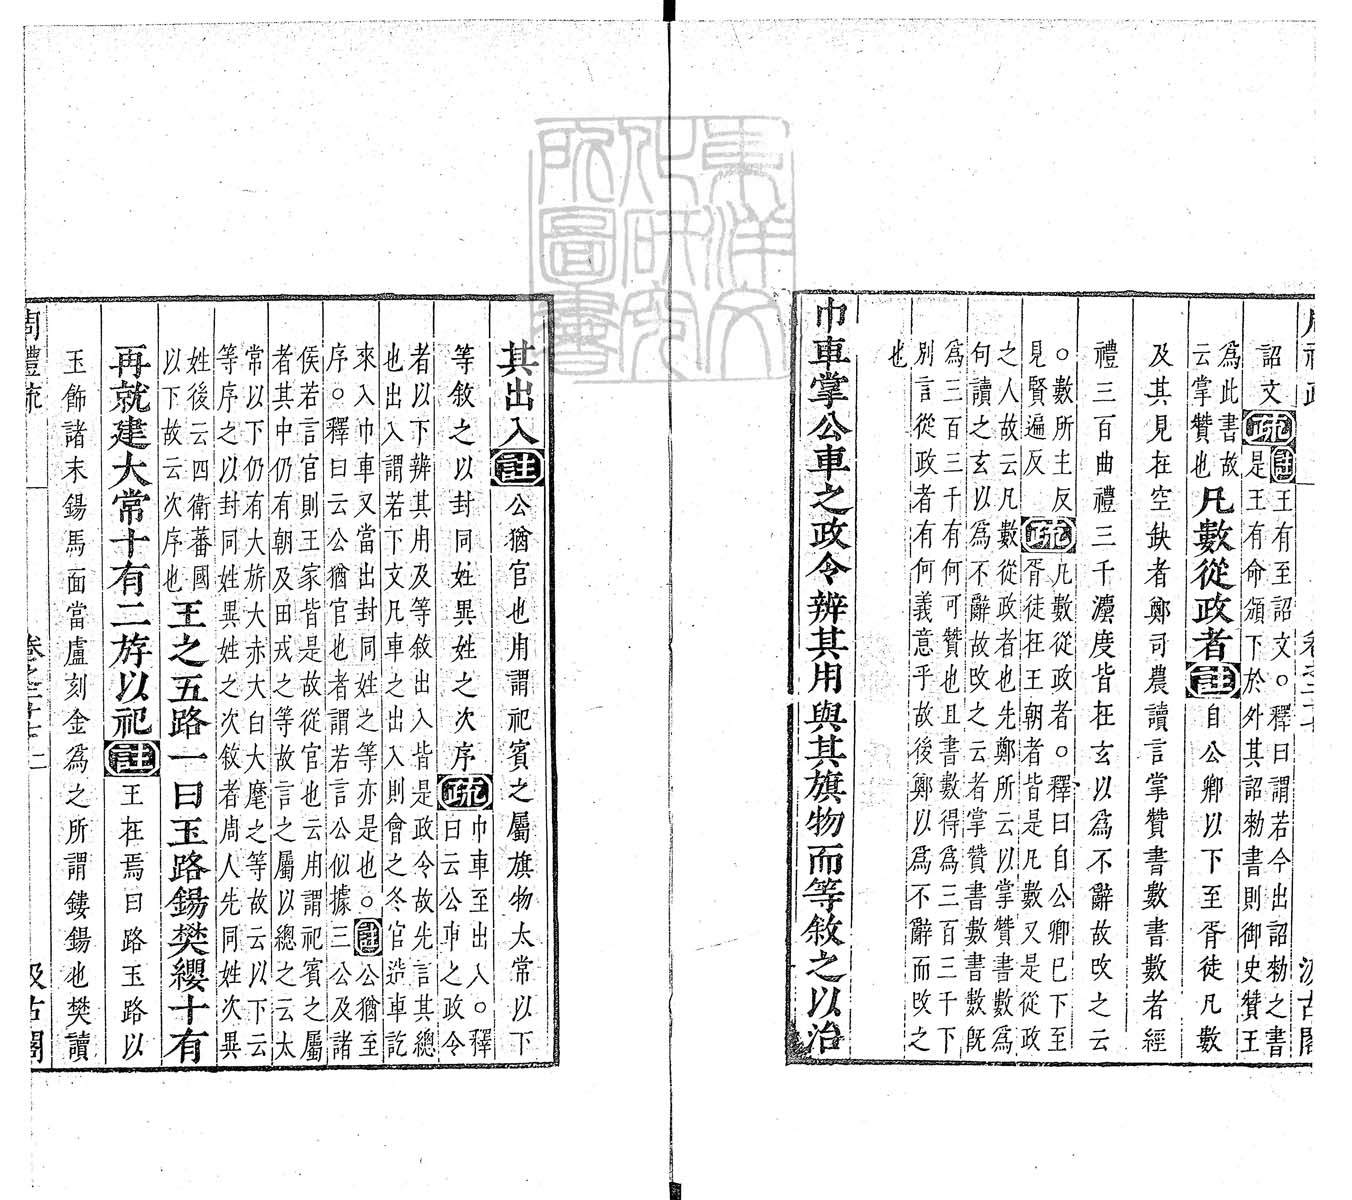 周禮疏 卷之二十七 汲古閣
詔文疏註王有至詔文。釋曰謂若今出詔勑之書
是王有命頒下於外其詔勑書則御史贊王
為此書故
云掌贊也
凡數從政者註自公卿以下至胥徒凡數
及其見在空缺者鄭司農讀言掌贊書數書數者經
禮三百曲禮三千灋度皆在玄以爲不辭故改之云
。數所主反
見賢遍反
疏凡數從政者。釋曰自公卿已下至
胥徒在王朝者皆是凡數又是從政
之人故云凡數從政者也先鄭所云以掌贊書數爲
句讀之玄以爲不辭故改之云者掌贊書數書數旣
爲三百三千有何可贊也且書數得爲三百三千下
別言從政者有何義意乎故後鄭以爲不辭而改之
也
巾車掌公車之政令辨其用與其旗物而等敘之以治
其出入註公猶官也用謂祀賓之屬旗物太常以下
等敘之以封同姓異姓之次序疏巾車至出入。釋
曰云公車之政令
者以下辨其用及等敘出入皆是政令故先言其總
也出入謂若下文凡車之出入則會之冬官造車訖
來入巾車又當出封同姓之等亦是也。註公猶至
序。釋曰云公猶官也者謂若言公似據三公及諸
侯若言官則王家皆是故從官也云用謂祀賓之屬
者其中仍有朝及田戎之等故言之屬以總之云太
常以下仍有大旂大赤大白大麾之等故云以下云
等序之以封同姓異姓之次敘者周人先同姓次異
姓後云四衛蕃國
以下故云次序也
王之五路一曰玉路鍚樊纓十有
再就建大常十有二斿以祀註王在焉曰路玉路以
玉飾諸末鍚馬面當盧刻金爲之所謂鏤鍚也樊讀
周禮疏 卷之二十七 二 汲古閣
東洋文化研究所圖書